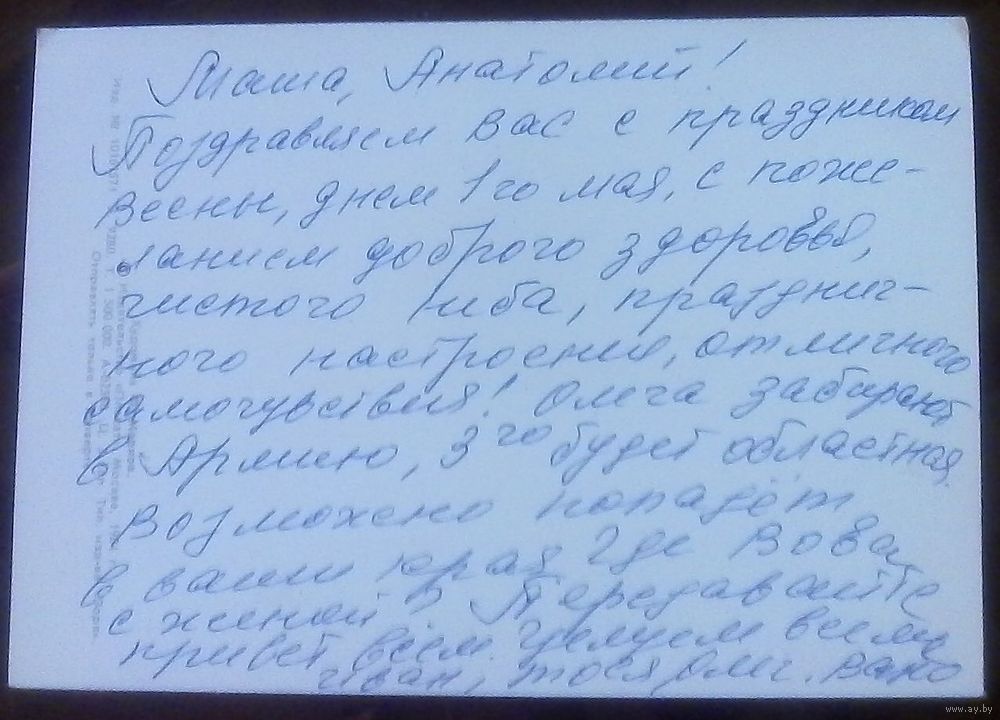 Маша, Анатолий!
Поздравляем вас с праздником
весны, днем 1го мая, с поже-
ланием доброго здоровья,
чистого неба, празднич-
ного настроения, отличного
самочувствия! Олега забирают
в Армию, 3го будет областная.
Возможено попадёт
в ваши края где Вова
с женой? Передавайте
привет всем. Целуем всем
Иван, Тося, Олег.
www.ay.by